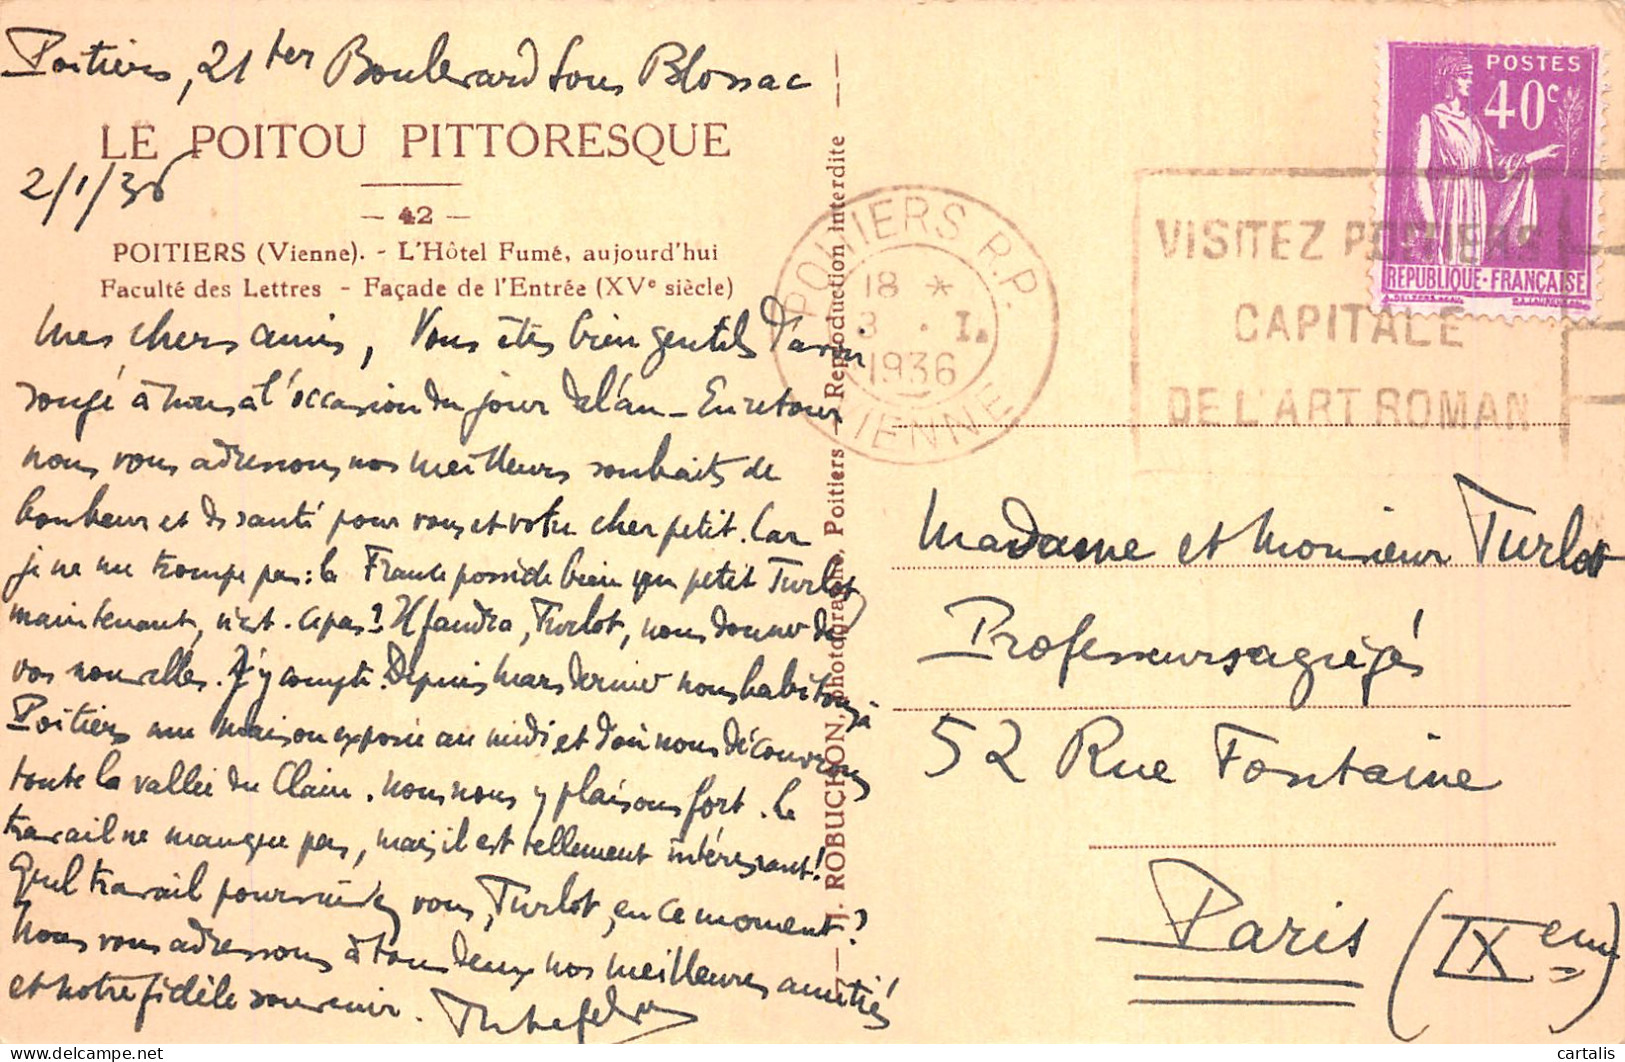 Poitiers, 21 ter Boulevard sous Blossac
LE POITOU PITTORESQUE
2/1/36
— 42 —
POITIERS (Vienne). - L'Hôtel Fumé, aujourd'hui
Faculté des Lettres - Façade de l'Entrée (XVe siècle)
Mes chers amis, Vous êtes bien gentils d'avoir
songé à nous à l'occasion du jour de l'an — En retour
nous vous adressons nos meilleurs souhaits de
bonheur et de santé pour vous et votre cher petit. Car
je ne me trompe pas : la France possède bien un petit Turlot
maintenant, n'est-ce pas ? Il faudra, Turlot, nous donner de
vos nouvelles. J'y compte. Depuis mars dernier nous habitons à
Poitiers une maison exposée au midi et d'où nous découvrons
toute la vallée du Clain. Nous nous y plaisons fort. Le
travail ne manque pas, mais il est tellement intéressant !
Quel travail poursuivez vous, Turlot, en ce moment ?
Nous vous adressons à tous deux nos meilleures amitiés
et notre fidèle souvenir.
J. ROBUCHON, photographe, Poitiers — Reproduction interdite
POITIERS R.P.
18 *
3 . I.
1936
VIENNE
VISITEZ POITIERS
CAPITALE
DE L'ART ROMAN
POSTES
40c
REPUBLIQUE·FRANÇAISE
Madame et Monsieur Turlot
Professeurs agrégés
52 Rue Fontaine
Paris (IXeme)
cartalis